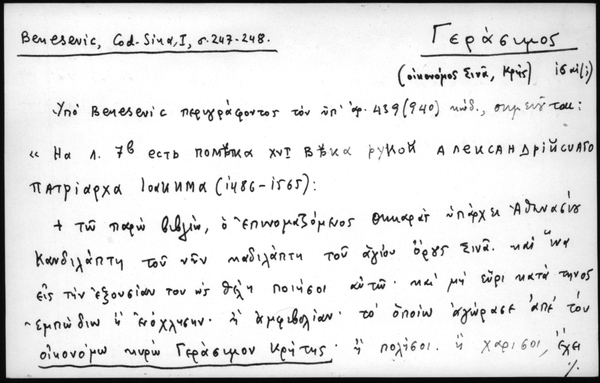 Benesevic, Cod. Sina, I, σ. 247-248.
Γεράσιμος
(οἰκονόμος Σινᾶ, Κρής) ις αἰ(;)
Ὑπό Benesevic περιγράφοντος τόν ὑπ' ἀρ. 439 (940) κώδ., σημειοῦται:
« На л. 7в есть помѣтка XVI вѣка рукой Александрійскаго
патріарха Іоакима (1486-1565):
+ τῶ παρῶ βιβλίω, ὁ ἐπινομαζόμενος θηκαρᾶτ ὑπάρχει Ἀθηνασίου
Κανδιλάπτη τοῦ νῦν καδιλάπτη τοῦ ἁγίου ὄρους Σινᾶ. καί ἵνα
εἰς τήν ἐξουσίαν του ὡς θέλη ποιήσοι αὐτῶ· καί μή εὕρι κατά τηνος
ἐμπώδιω ἤ ἐνόχλησην· ἤ ἀμφιβολίαν· τό ὁποίω ἀγώρασε ἀπέ τόν
οἰκονόμω κυρῶ Γεράσιμον Κρήτης· ἤ πολίσοι. ἤ χαρίσοι, ἔχει
./.